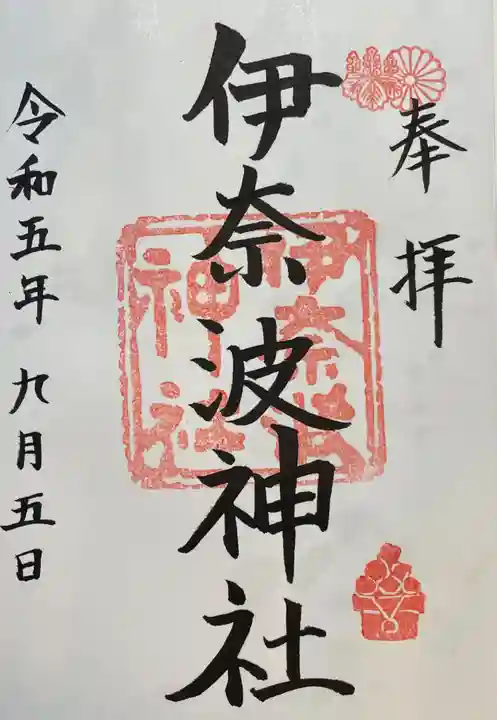 奉拝
伊奈波神社
伊奈波神社
令和五年 九月五日